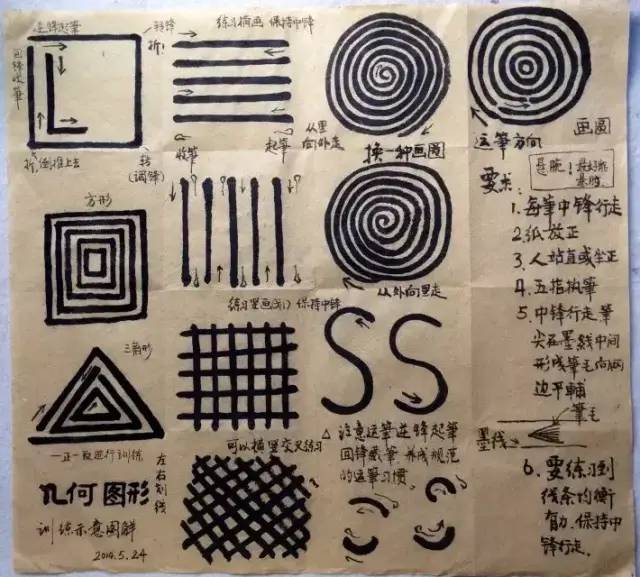 逆锋起筆
转锋
折↓
回锋收筆
转
(调锋)
练习横画 保持中锋
收筆
起筆
从里
向外走
换一种画圆
运筆方向
画圆
方形
练习竖画(川) 保持中锋
从外向里走
要求:
1. 每筆中锋行走
2. 纸放正
3. 人站直或坐正
4. 五指执筆
5. 中锋行走筆
尖在墨线中间
形成筆毛向两
边平輔
筆毛
墨线
6. 要练习到
线条均衡
有力、保持中
锋行走.
三角形
一正一反进行训练
可以横竖交叉练习
△ 注意运筆逆锋起筆
回锋藏筆 养成规范
的运筆习惯.
几何图形
训练示意图解
2014.5.24
左右划线